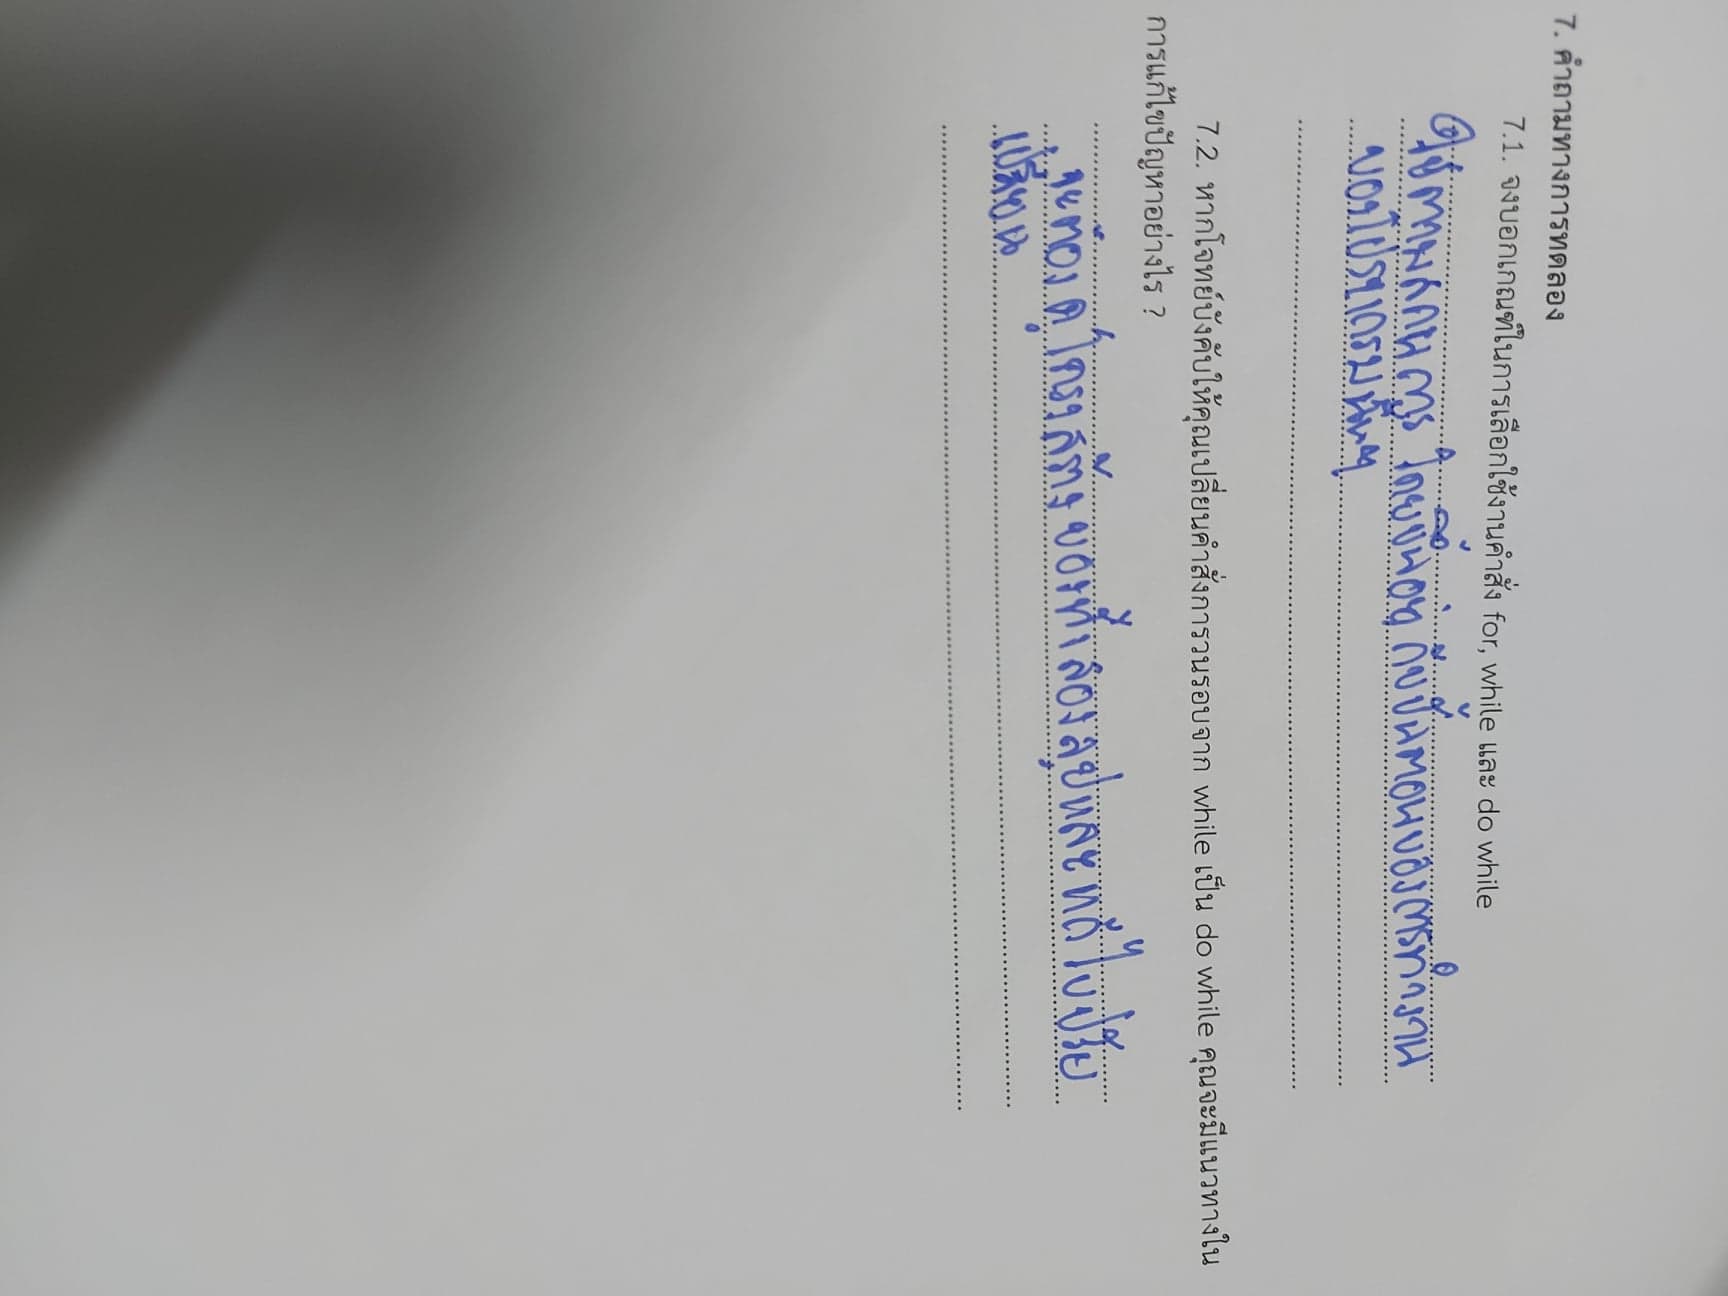 7. คำถามทางการทดลอง
7.1. จงบอกเกณฑ์ในการเลือกใช้งานคำสั่ง for, while และ do while
ดูตามสถานการ โดยขึ้นอยู่ กับขั้นตอนของการทำงาน
ของโปรแกรมนั้นๆ
7.2. หากโจทย์บังคับให้คุณเปลี่ยนคำสั่งการวนรอบจาก while เป็น do while คุณจะมีแนวทางใน
การแก้ไขปัญหาอย่างไร ?
จะต้อง ดูโครงสร้าง ของทั้ง สองลูปและ
เปลี่ยน